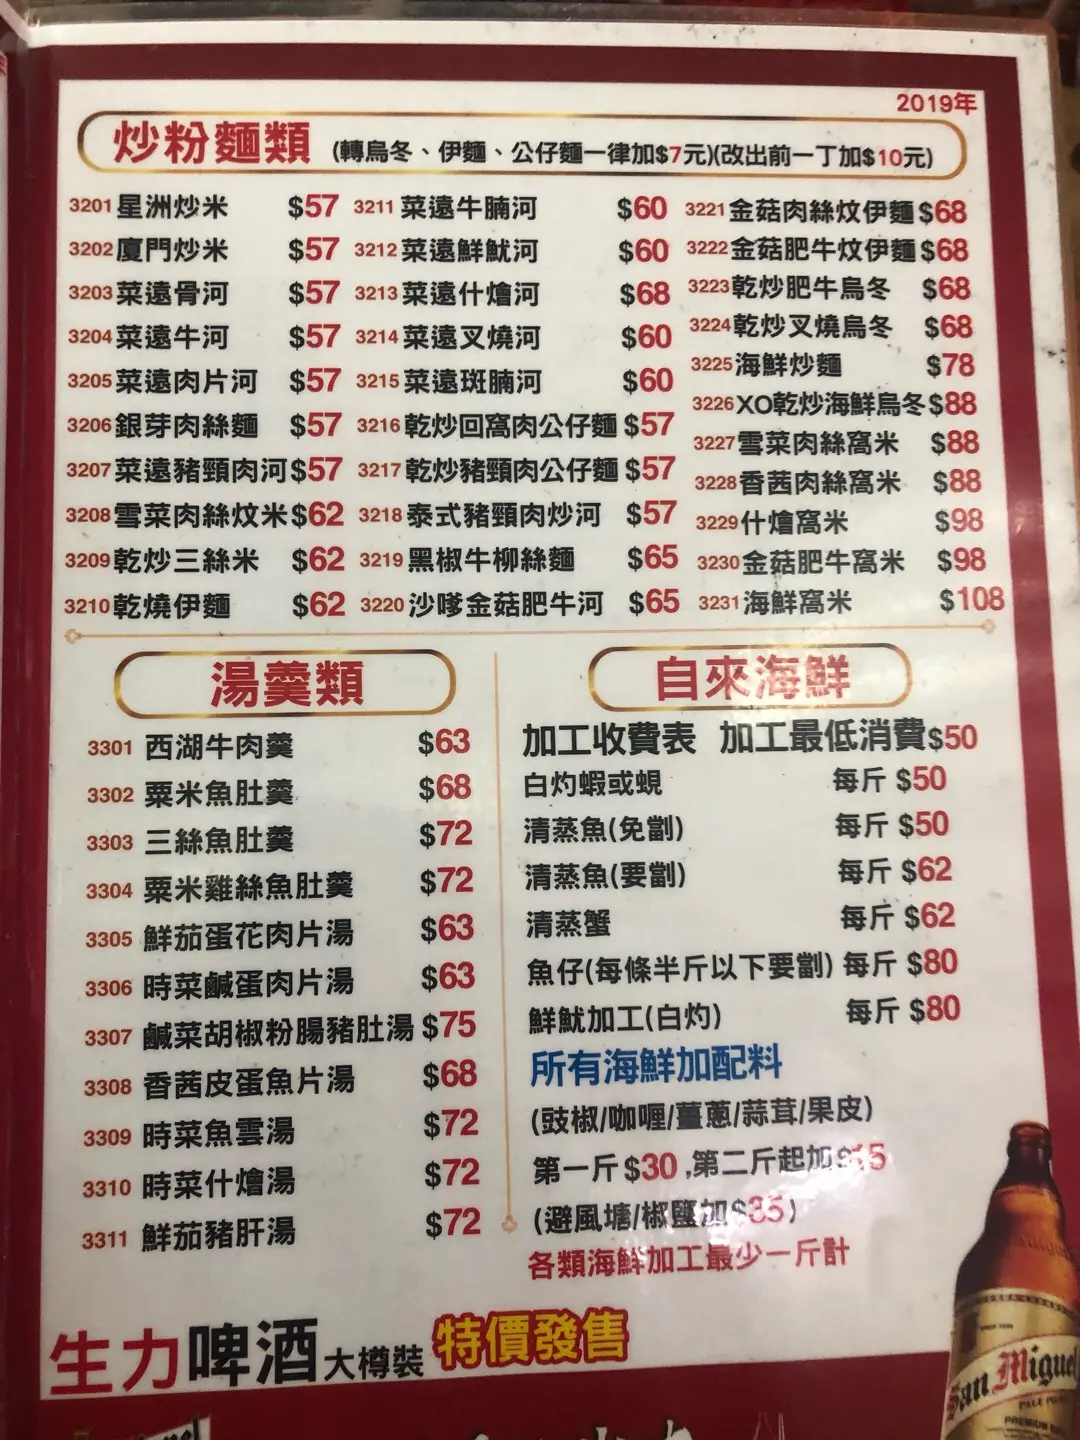 2019年
炒粉麵類 (轉烏冬、伊麵、公仔麵一律加$7元)(改出前一丁加$10元)
3201 星洲炒米 $57
3202 廈門炒米 $57
3203 菜遠骨河 $57
3204 菜遠牛河 $57
3205 菜遠肉片河 $57
3206 銀芽肉絲麵 $57
3207 菜遠豬頸肉河 $57
3208 雪菜肉絲炆米 $62
3209 乾炒三絲米 $62
3210 乾燒伊麵 $62
3211 菜遠牛腩河 $60
3212 菜遠鮮魷河 $60
3213 菜遠什燴河 $68
3214 菜遠叉燒河 $60
3215 菜遠斑腩河 $60
3216 乾炒回窩肉公仔麵 $57
3217 乾炒豬頸肉公仔麵 $57
3218 泰式豬頸肉炒河 $57
3219 黑椒牛柳絲麵 $65
3220 沙嗲金菇肥牛河 $65
3221 金菇肉絲炆伊麵 $68
3222 金菇肥牛炆伊麵 $68
3223 乾炒肥牛烏冬 $68
3224 乾炒叉燒烏冬 $68
3225 海鮮炒麵 $78
3226 XO乾炒海鮮烏冬 $88
3227 雪菜肉絲窩米 $88
3228 香茜肉絲窩米 $88
3229 什燴窩米 $98
3230 金菇肥牛窩米 $98
3231 海鮮窩米 $108
湯羹類
3301 西湖牛肉羹 $63
3302 粟米魚肚羹 $68
3303 三絲魚肚羹 $72
3304 粟米雞絲魚肚羹 $72
3305 鮮茄蛋花肉片湯 $63
3306 時菜鹹蛋肉片湯 $63
3307 鹹菜胡椒粉腸豬肚湯 $75
3308 香茜皮蛋魚片湯 $68
3309 時菜魚雲湯 $72
3310 時菜什燴湯 $72
3311 鮮茄豬肝湯 $72
自來海鮮
加工收費表 加工最低消費$50
白灼蝦或蜆 每斤 $50
清蒸魚(免劏) 每斤 $50
清蒸魚(要劏) 每斤 $62
清蒸蟹 每斤 $62
魚仔(每條半斤以下要劏) 每斤 $80
鮮魷加工(白灼) 每斤 $80
所有海鮮加配料
(豉椒/咖喱/薑蔥/蒜茸/果皮)
第一斤$30,第二斤起加$15
(避風塘/椒鹽加$35)
各類海鮮加工最少一斤計
生力啤酒大樽裝 特價發售
San Miguel
PALE PILSEN
PREMIUM